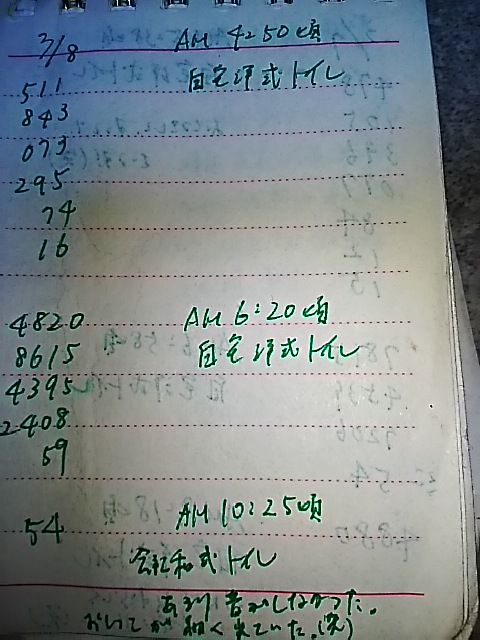 3/8 AM 4:50頃
511 自宅洋式トイレ
843
073
295
74
16
4820 AM 6:20頃
8615 自宅洋式トイレ
4395
2408
59
54 AM 10:25頃
会社和式トイレ
あまり音がしなかった。
においてが細く出ていた(笑)